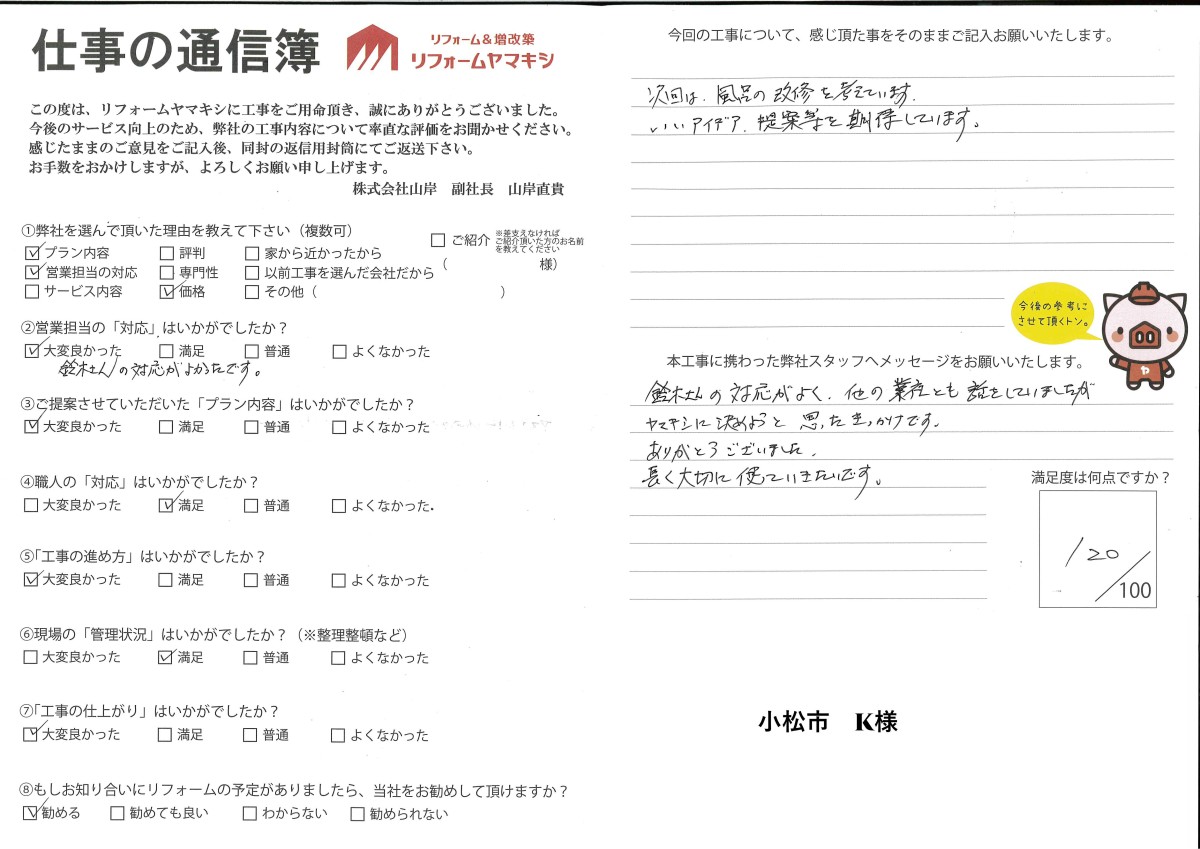 仕事の通信簿
リフォーム&増改築
リフォームヤマキシ
この度は、リフォームヤマキシに工事をご用命頂き、誠にありがとうございました。
今後のサービス向上のため、弊社の工事内容について率直な評価をお聞かせください。
感じたままのご意見をご記入後、同封の返信用封筒にてご返送下さい。
お手数をおかけしますが、よろしくお願い申し上げます。
株式会社山岸 副社長 山岸直貴
①弊社を選んで頂いた理由を教えて下さい(複数可)
☑プラン内容 □評判 □家から近かったから
☑営業担当の対応 □専門性 □以前工事を選んだ会社だから
□サービス内容 ☑価格 □その他( )
□ご紹介 ※差支えなければ
ご紹介頂いた方のお名前
を教えてください
( 様)
②営業担当の「対応」はいかがでしたか?
☑大変良かった □満足 □普通 □よくなかった
鈴木さんの対応がよかったです。
③ご提案させていただいた「プラン内容」はいかがでしたか?
☑大変良かった □満足 □普通 □よくなかった
④職人の「対応」はいかがでしたか?
□大変良かった ☑満足 □普通 □よくなかった
⑤「工事の進め方」はいかがでしたか?
☑大変良かった □満足 □普通 □よくなかった
⑥現場の「管理状況」はいかがでしたか?(※整理整頓など)
□大変良かった ☑満足 □普通 □よくなかった
⑦「工事の仕上がり」はいかがでしたか?
☑大変良かった □満足 □普通 □よくなかった
⑧もしお知り合いにリフォームの予定がありましたら、当社をお勧めして頂けますか?
☑勧める □勧めても良い □わからない □勧められない
今回の工事について、感じ頂た事をそのままご記入お願いいたします。
次回は、風呂の改修を考えています。
いいアイデア、提案等を期待しています。
今後の参考に
させて頂くトン。
ヤ
本工事に携わった弊社スタッフへメッセージをお願いいたします。
鈴木さんの対応がよく、他の業社とも話をしていましたが
ヤマキシに決めようと思ったきっかけです。
ありがとうございました。
長く大切に使っていきたいです。
満足度は何点ですか?
120
/100
小松市 K様